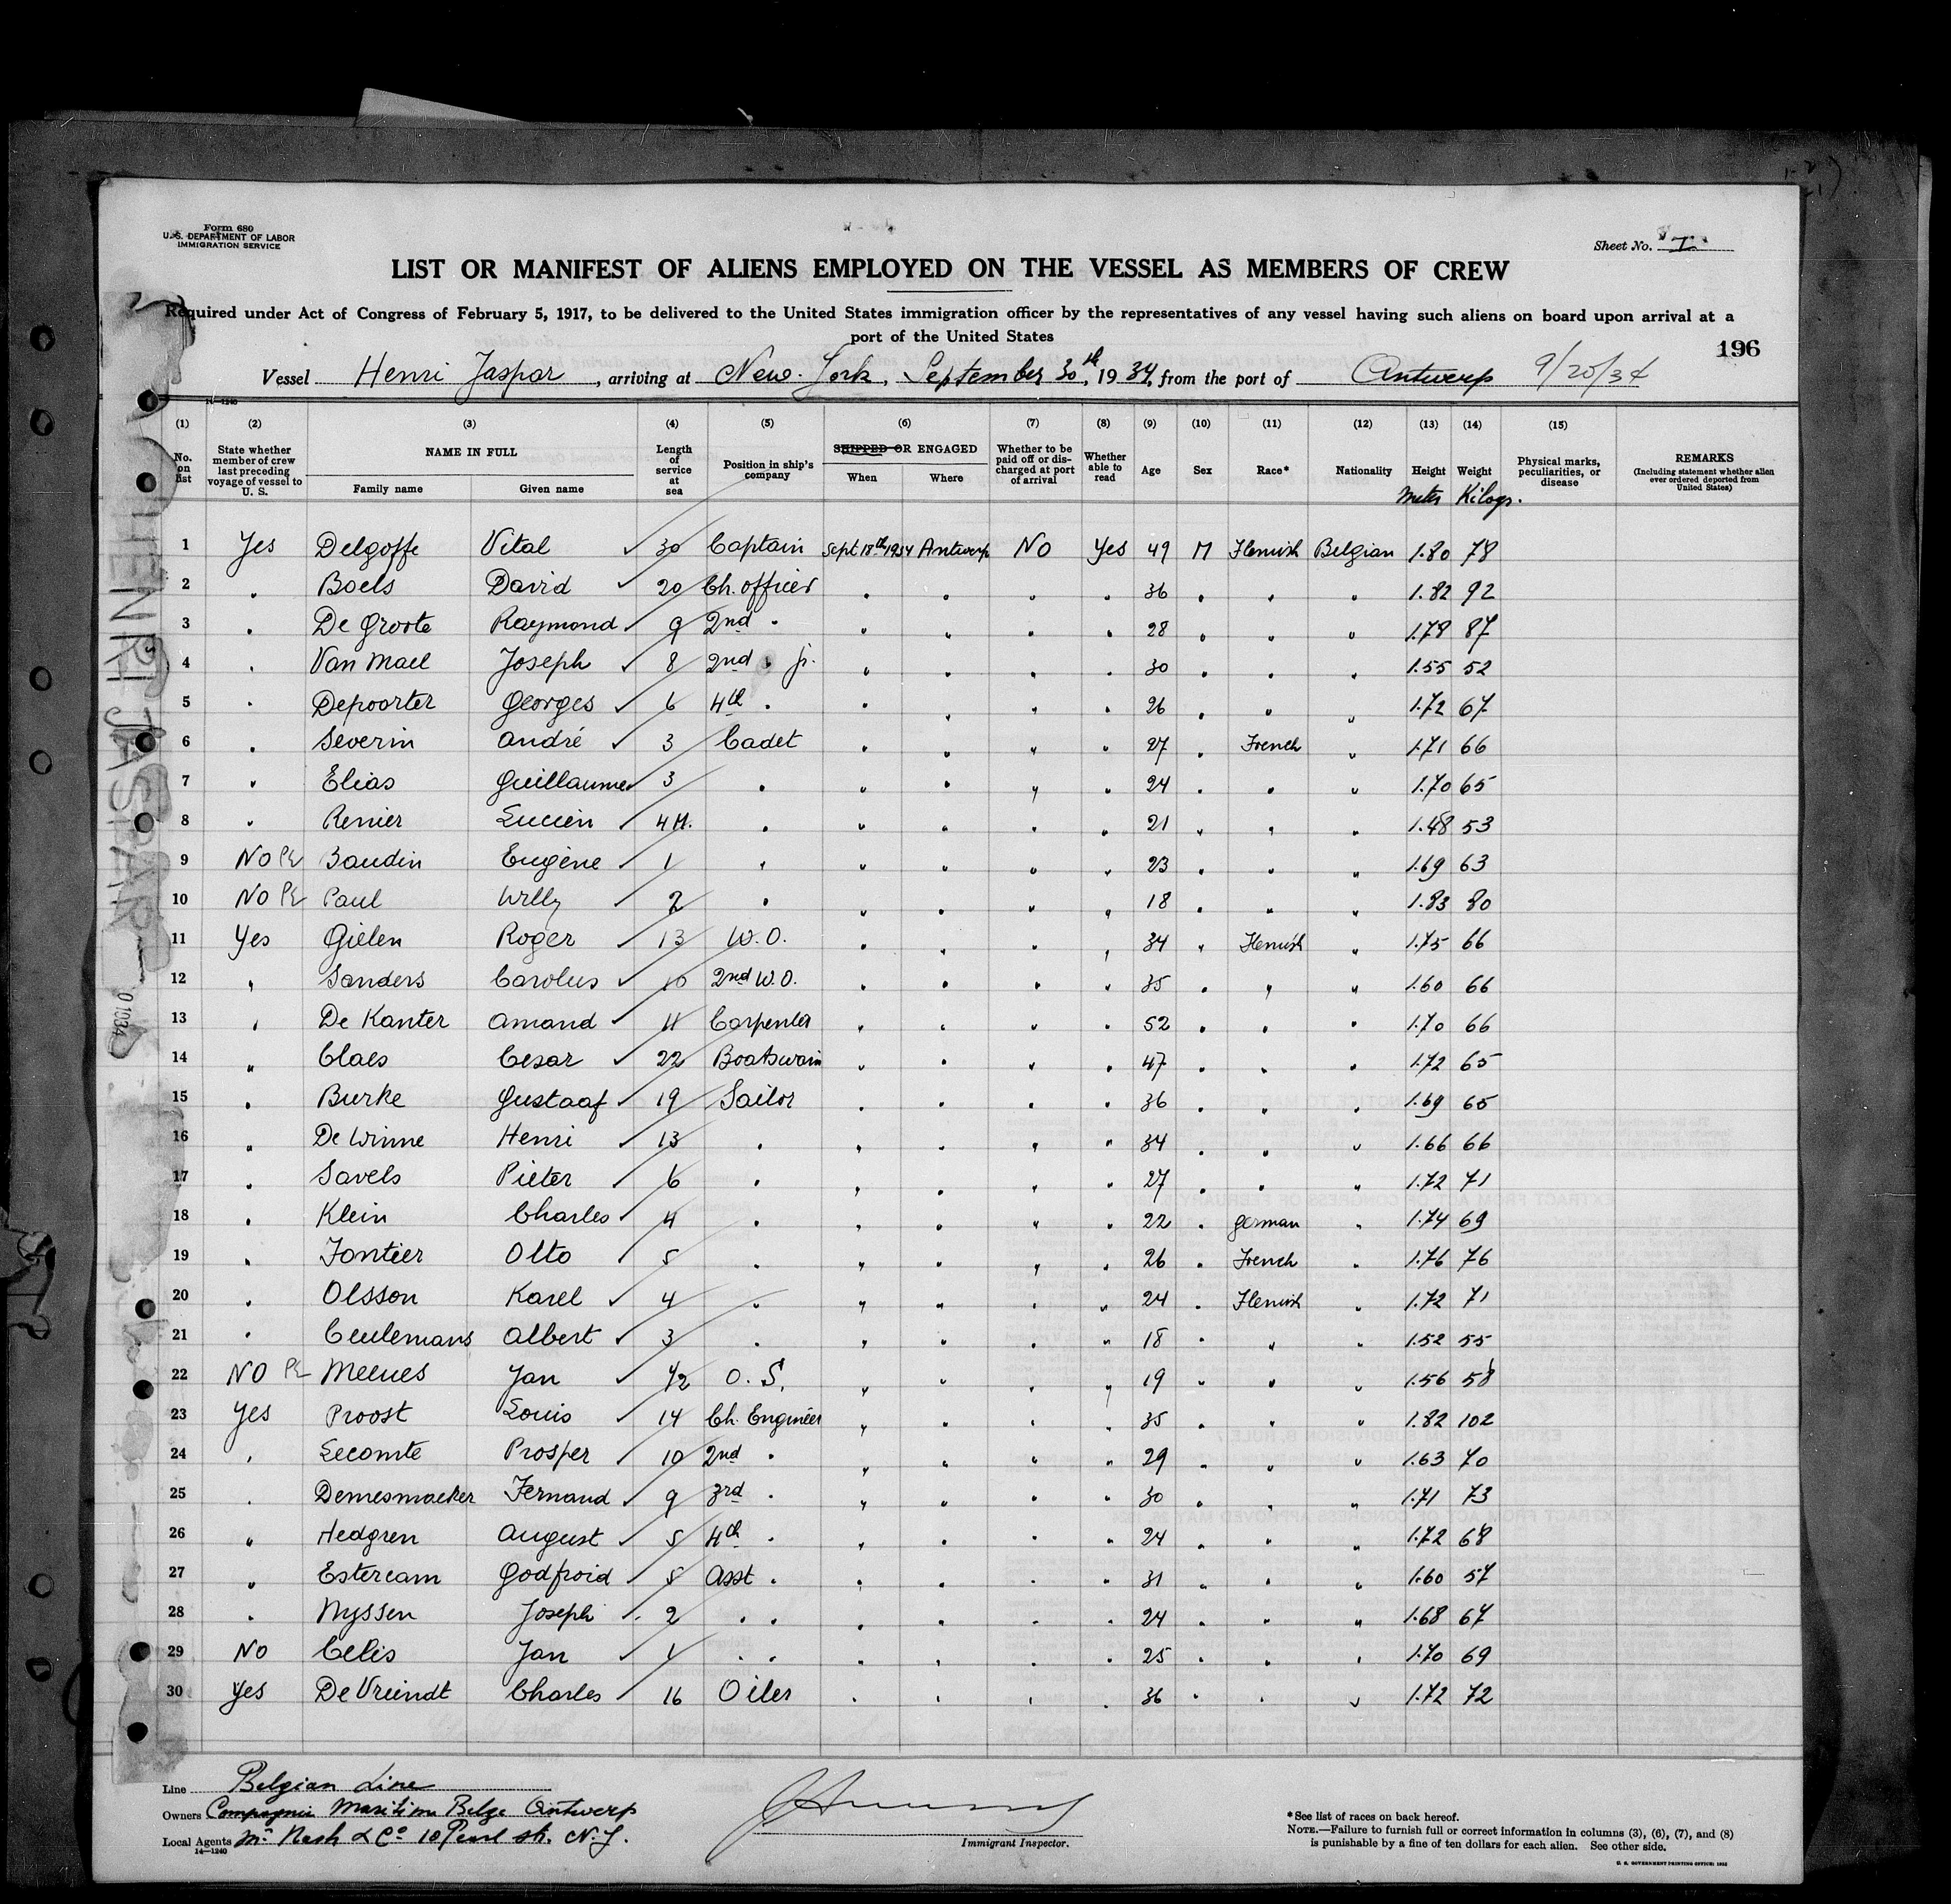 Form 680
U. S. DEPARTMENT OF LABOR
IMMIGRATION SERVICE
Sheet No. I
LIST OR MANIFEST OF ALIENS EMPLOYED ON THE VESSEL AS MEMBERS OF CREW
Required under Act of Congress of February 5, 1917, to be delivered to the United States immigration officer by the representatives of any vessel having such aliens on board upon arrival at a
port of the United States
196
Vessel Henri Jaspar, arriving at New-York, September 30th, 1934, from the port of Antwerp 9/20/34
(1) (2) (3) (4) (5) (6) (7) (8) (9) (10) (11) (12) (13) (14) (15)
No. on list | State whether member of crew last preceding voyage of vessel to U. S. | NAME IN FULL Family name Given name | Length of service at sea | Position in ship's company | SHIPPED OR ENGAGED When Where | Whether to be paid off or discharged at port of arrival | Whether able to read | Age | Sex | Race* | Nationality | Height Meter | Weight Kilogr. | Physical marks, peculiarities, or disease | REMARKS (Including statement whether alien ever ordered deported from United States)
1 Yes Delgoffe Vital 30 Captain Sept 18th 1934 Antwerp NO Yes 49 M Flemish Belgian 1.80 78
2 " Boels David 20 Ch. officer " " " " 36 " " " 1.82 92
3 " De Groote Raymond 9 2nd " " " " " 28 " " " 1.78 87
4 " Van Mael Joseph 8 2nd " jr. " " " " 30 " " " 1.55 52
5 " Depoorter Georges 6 4th " " " " " 26 " " " 1.72 67
6 " Severin André 3 Cadet " " " " 27 " French " 1.71 66
7 " Elias Guillaume 3 " " " " " 24 " " " 1.70 65
8 " Renier Lucien 4 M. " " " " " 21 " " " 1.48 53
9 NO Baudin Eugène 1 " " " " " 23 " " " 1.69 63
10 NO Paul Willy 2 " " " " " 18 " " " 1.83 80
11 Yes Gielen Roger 13 W.O. " " " " 34 " Flemish " 1.75 66
12 " Sanders Carolus 10 2nd W.O. " " " " 35 " " " 1.60 66
13 " De Kanter Amand 11 Carpenter " " " " 52 " " " 1.70 66
14 " Claes Cesar 22 Boatswain " " " " 47 " " " 1.72 65
15 " Burke Gustaaf 19 Sailor " " " " 36 " " " 1.69 65
16 " De Winne Henri 13 " " " " " 34 " " " 1.66 66
17 " Savels Pieter 6 " " " " " 27 " " " 1.72 71
18 " Klein Charles 4 " " " " " 22 " German " 1.74 69
19 " Fontier Otto 5 " " " " " 26 " French " 1.76 76
20 " Olsson Karel 4 " " " " " 24 " Flemish " 1.72 71
21 " Ceulemans Albert 3 " " " " " 18 " " " 1.52 55
22 NO Meeues Jan 1/2 O. S. " " " " 19 " " " 1.56 58
23 Yes Proost Louis 14 Ch. Engineer " " " " 35 " " " 1.82 102
24 " Lecomte Prosper 10 2nd " " " " " 29 " " " 1.63 70
25 " Demesmaeker Fernand 9 3rd " " " " " 30 " " " 1.71 73
26 " Hedgren August 5 4th " " " " " 24 " " " 1.72 68
27 " Estercam Godfroid 5 Asst " " " " " 31 " " " 1.60 57
28 " Nyssen Joseph 2 " " " " " " 24 " " " 1.68 67
29 NO Celis Jan 1 " " " " " " 25 " " " 1.70 69
30 Yes De Vriendt Charles 16 Oiler " " " " 36 " " " 1.72 72
HENRI JASPAR
Line Belgian Line
Owners Compagnie Maritime Belge Antwerp
Local Agents Mr. Nash & Co. 10 Pearl str. N.Y.
14—1240
Immigrant Inspector.
*See list of races on back hereof.
NOTE.—Failure to furnish full or correct information in columns (3), (6), (7), and (8)
is punishable by a fine of ten dollars for each alien. See other side.
U. S. GOVERNMENT PRINTING OFFICE: 1932